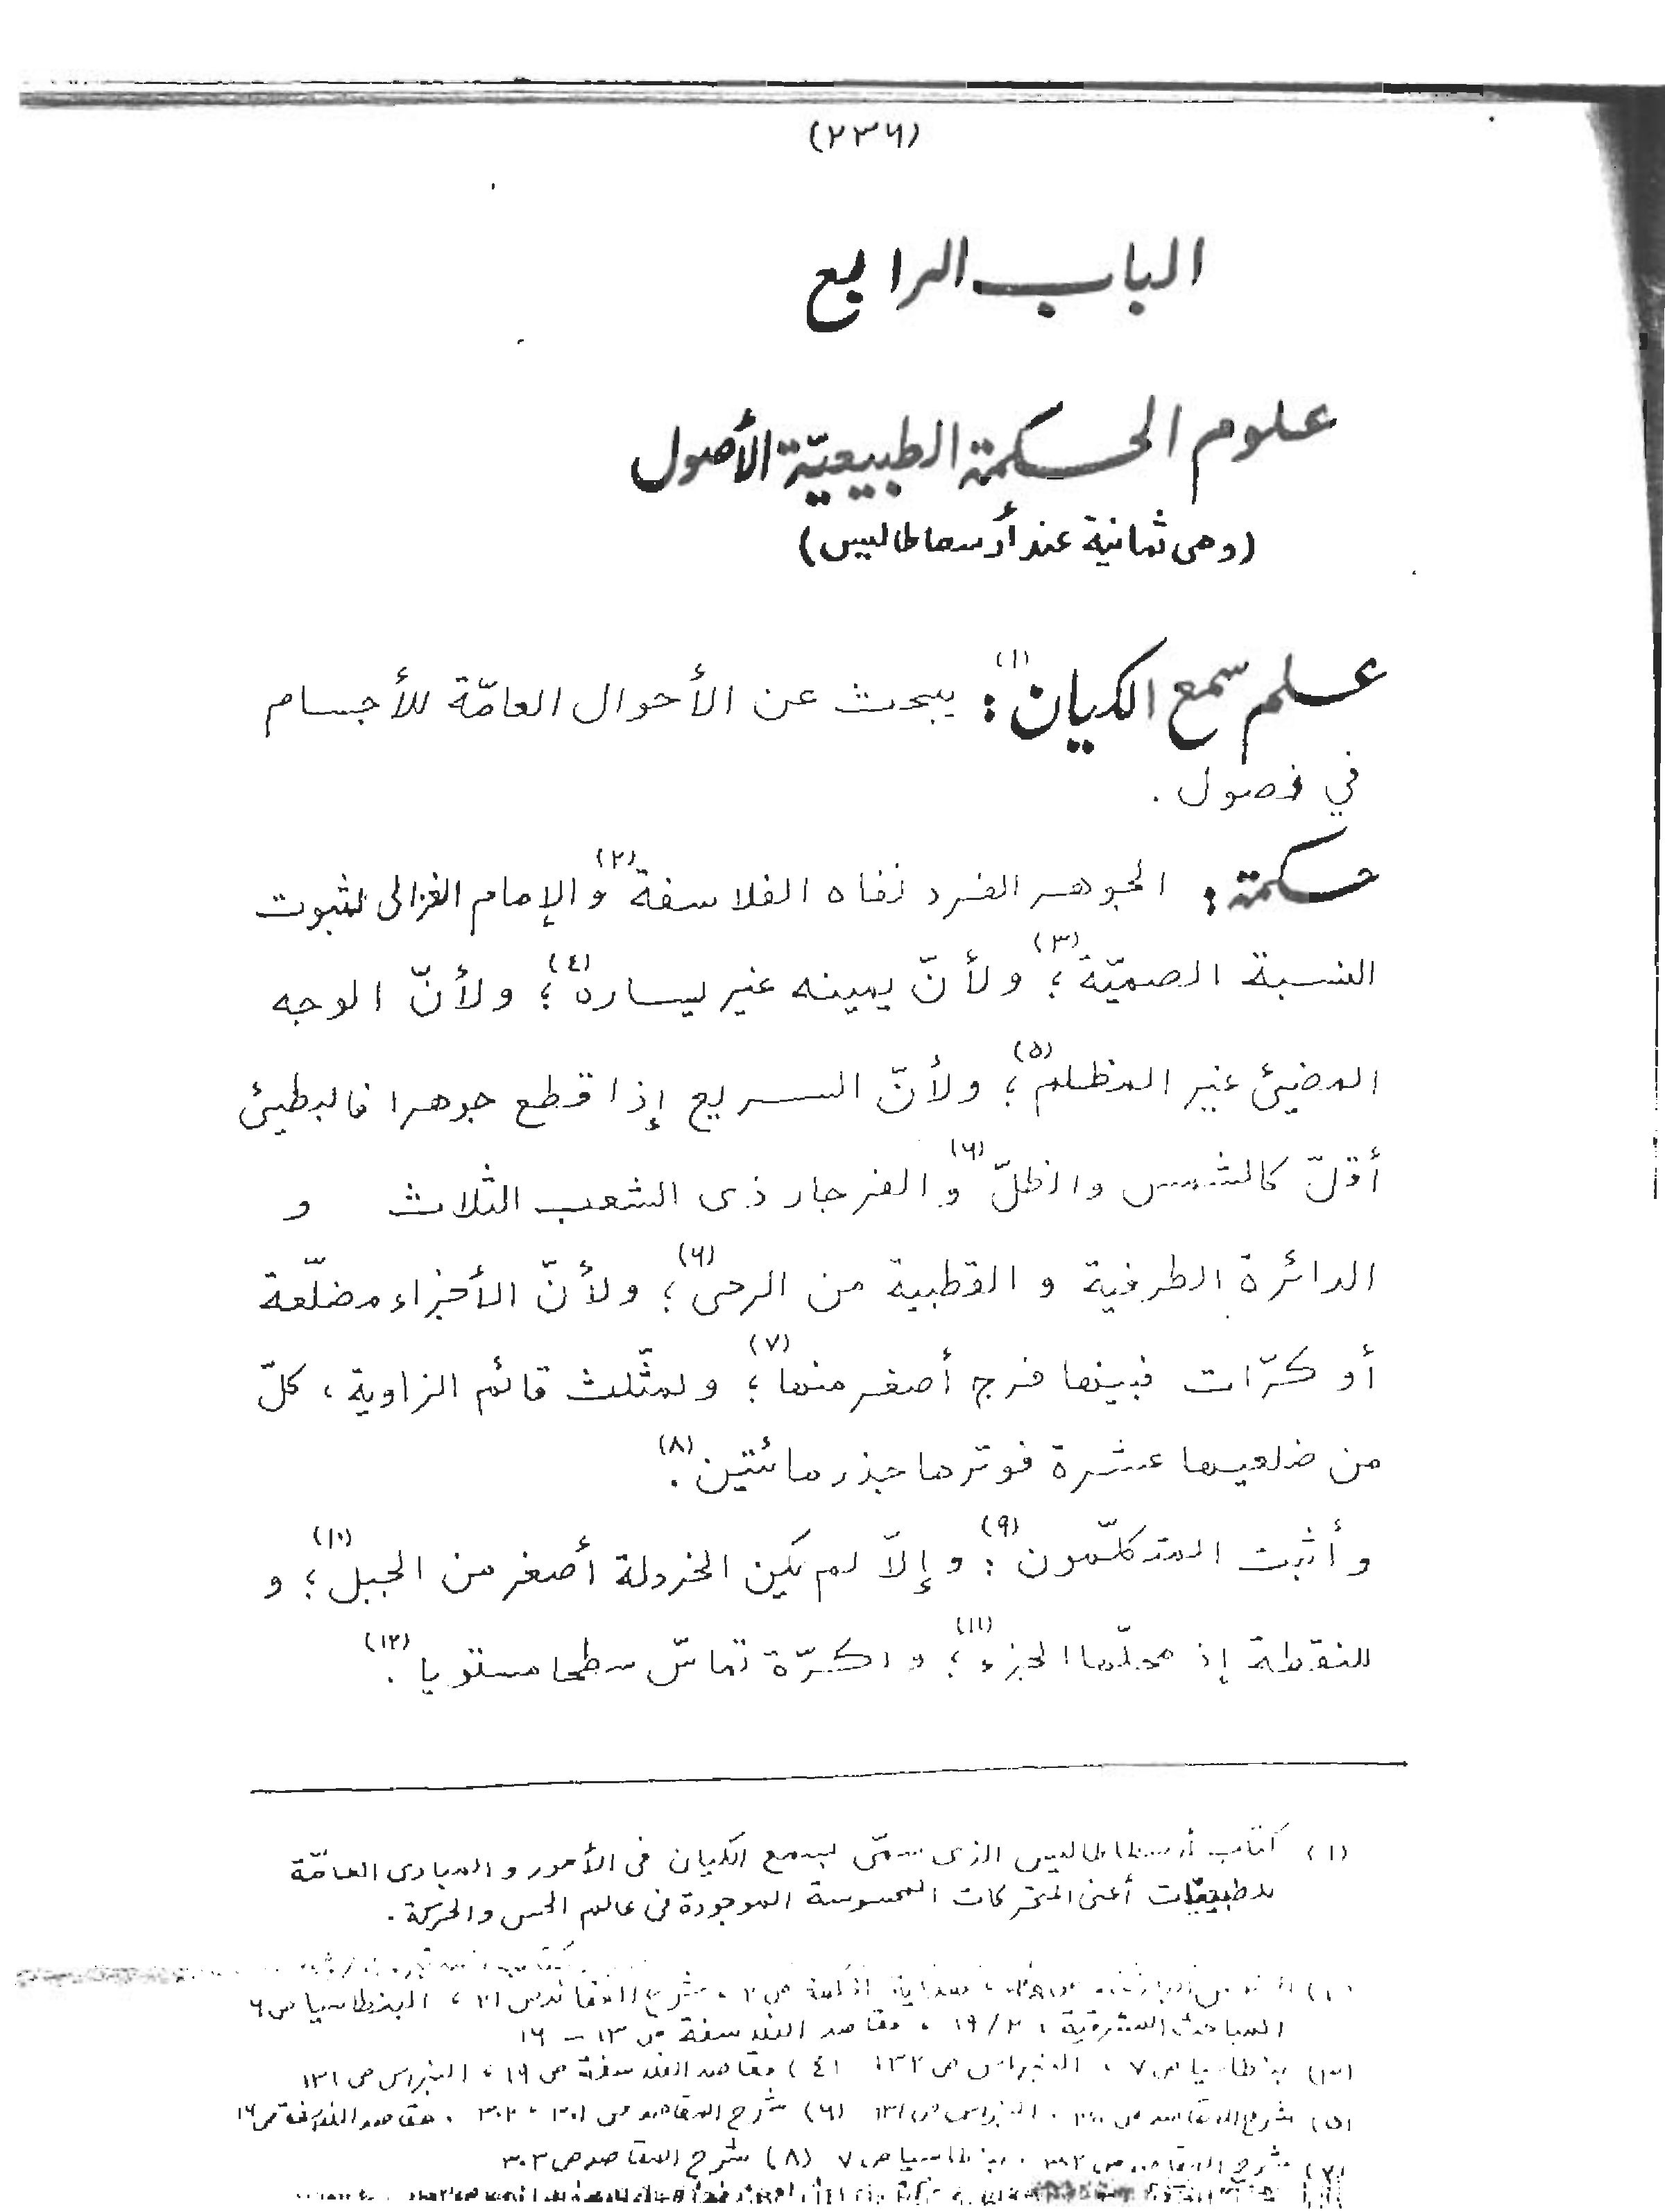 (٢٣٦)
الباب الرابع
علوم الحكمة الطبيعيّة الأصول
(وهى ثمانية عند أرسطاطاليس)
علم سمع الكيان(١): يبحث عن الأحوال العامّة للأجسام
في فصول .
حكمة: الجوهر الفرد نفاه الفلاسفة(٢) و الإمام الغزالى لثبوت
النسبة الصميّة(٣)؛ ولأنّ يمينه غير يساره(٤)؛ ولأنّ الوجه
المضيئ غير المظلم(٥)؛ ولأنّ السريع إذا قطع جوهرا فالبطيئ
أقلّ كالشمس والظلّ(٦) و الفرجار ذى الشعب الثلاث و
الدائرة الطرفية و القطبية من الرحى(٦)؛ ولأنّ الأجزاء مضلّعة
أو كرّات فبينها فرج أصغر منها(٧)؛ ولمثّلث قائم الزاوية، كلّ
من ضلعيها عشرة فوترها جذر مائتين(٨).
و أثبت المتكلّمون(٩): و إلاّ لم يكن الخردلة أصغر من الجبل(١٠)؛ و
للنقطة إذ محلّها الجزء(١١)؛ و لكرّة تماسّ سطحا مستويا(١٢).
(١) كتاب أرسطاطاليس الذى سمّى بسمع الكيان فى الأمور و المبادى العامّة
للطبيعيّات أعنى المتحركات المحسوسة الموجودة فى عالم الحس والحركة .
هداية الحكمة ص ٢ ، شرح العقائد ص ٢١ ، البنطاسيا ص ٦
المباحث المشرقية ، ٢/١٩ ، مقاصد الفلاسفة ص ١٣ - ١٦
(٣) بنطاسيا ص ٧ ، النبراس ص ١٣٢ (٤) مقاصد الفلاسفة ص ١٦ ، النبراس ص ١٣١
(٥) شرح المقاصد ص ، النبراس ص ١٣١ (٦) شرح المقاصد ص ٣٠١ ، ٣٠٢ ، مقاصد الفلاسفة ص ١٦
(٧) شرح المقاصد ص ، بنطاسيا ص ٧ (٨) شرح المقاصد ص ٣٠٣